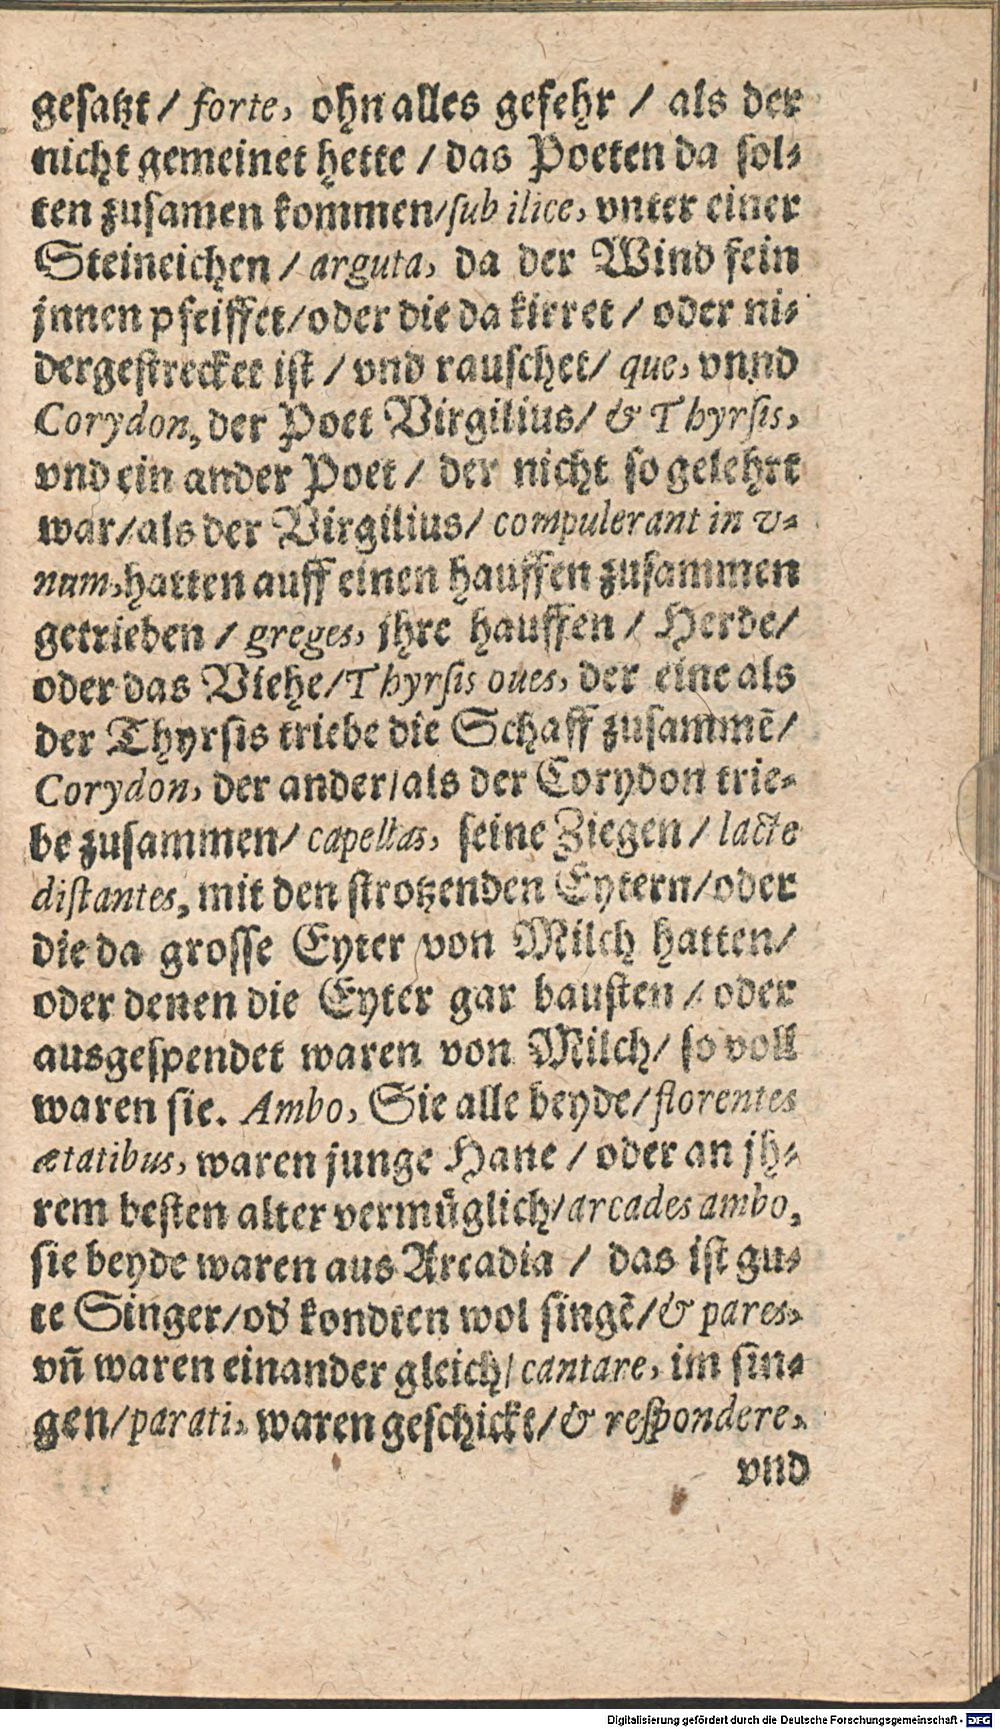 gesatzt / forte, ohn alles gefehr / als der
nicht gemeinet hette / das Poeten da sol-
ten zusamen kommen/sub ilice, vnter einer
Steineichen / arguta, da der Wind fein
jnnen pfeiffet/oder die da kirret / oder ni-
dergestrecket ist / vnd rauschet/ que, vnnd
Corydon, der Poet Virgilius/ & Thyrsis,
vnd ein ander Poet / der nicht so gelehrt
war/als der Virgilius/ compulerant in v-
num, hatten auff einen hauffen zusammen
getrieben / greges, jhre hauffen / Herde/
oder das Viehe/Thyrsis oues, der eine als
der Thyrsis triebe die Schaff zusammē/
Corydon, der ander/als der Corydon trie-
be zusammen/ capellas, seine Ziegen / lacte
distantes, mit den strotzenden Eytern/oder
die da grosse Eyter von Milch hatten/
oder denen die Eyter gar bausten / oder
ausgespendet waren von Milch/ so voll
waren sie. Ambo, Sie alle beyde/florentes
ætatibus, waren junge Hane / oder an jh-
rem besten alter vermüglich/arcades ambo,
sie beyde waren aus Arcadia / das ist gu-
te Singer/od' kondten wol singē/& pares,
vñ waren einander gleich/ cantare, im sin-
gen/parati, waren geschickt/& respondere,
vnd
Digitalisierung gefördert durch die Deutsche Forschungsgemeinschaft - DFG